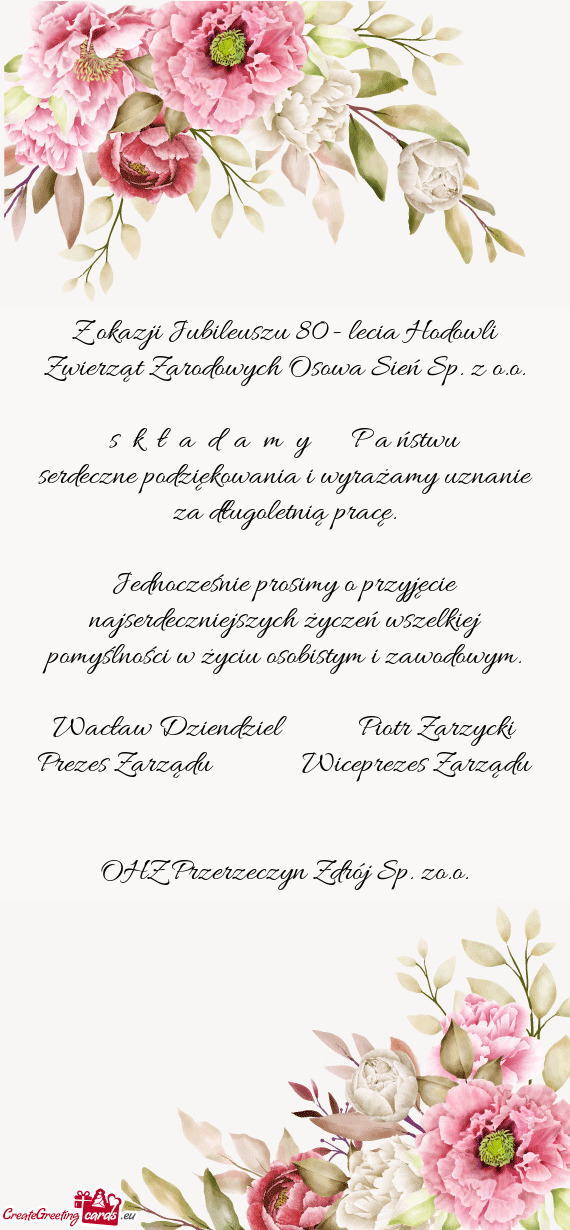 Z okazji Jubileuszu 80 - lecia Hodowli
Zwierząt Zarodowych Osowa Sień Sp. z o.o.
s k ł a d a m y Pa ństwu
serdeczne podziękowania i wyrażamy uznanie
za długoletnią pracę.
Jednocześnie prosimy o przyjęcie
najserdeczniejszych życzeń wszelkiej
pomyślności w życiu osobistym i zawodowym.
Wacław Dziendziel Piotr Zarzycki
Prezes Zarządu Wiceprezes Zarządu
OHZ Przerzeczyn Zdrój Sp. zo.o.
CreateGreeting cards .eu